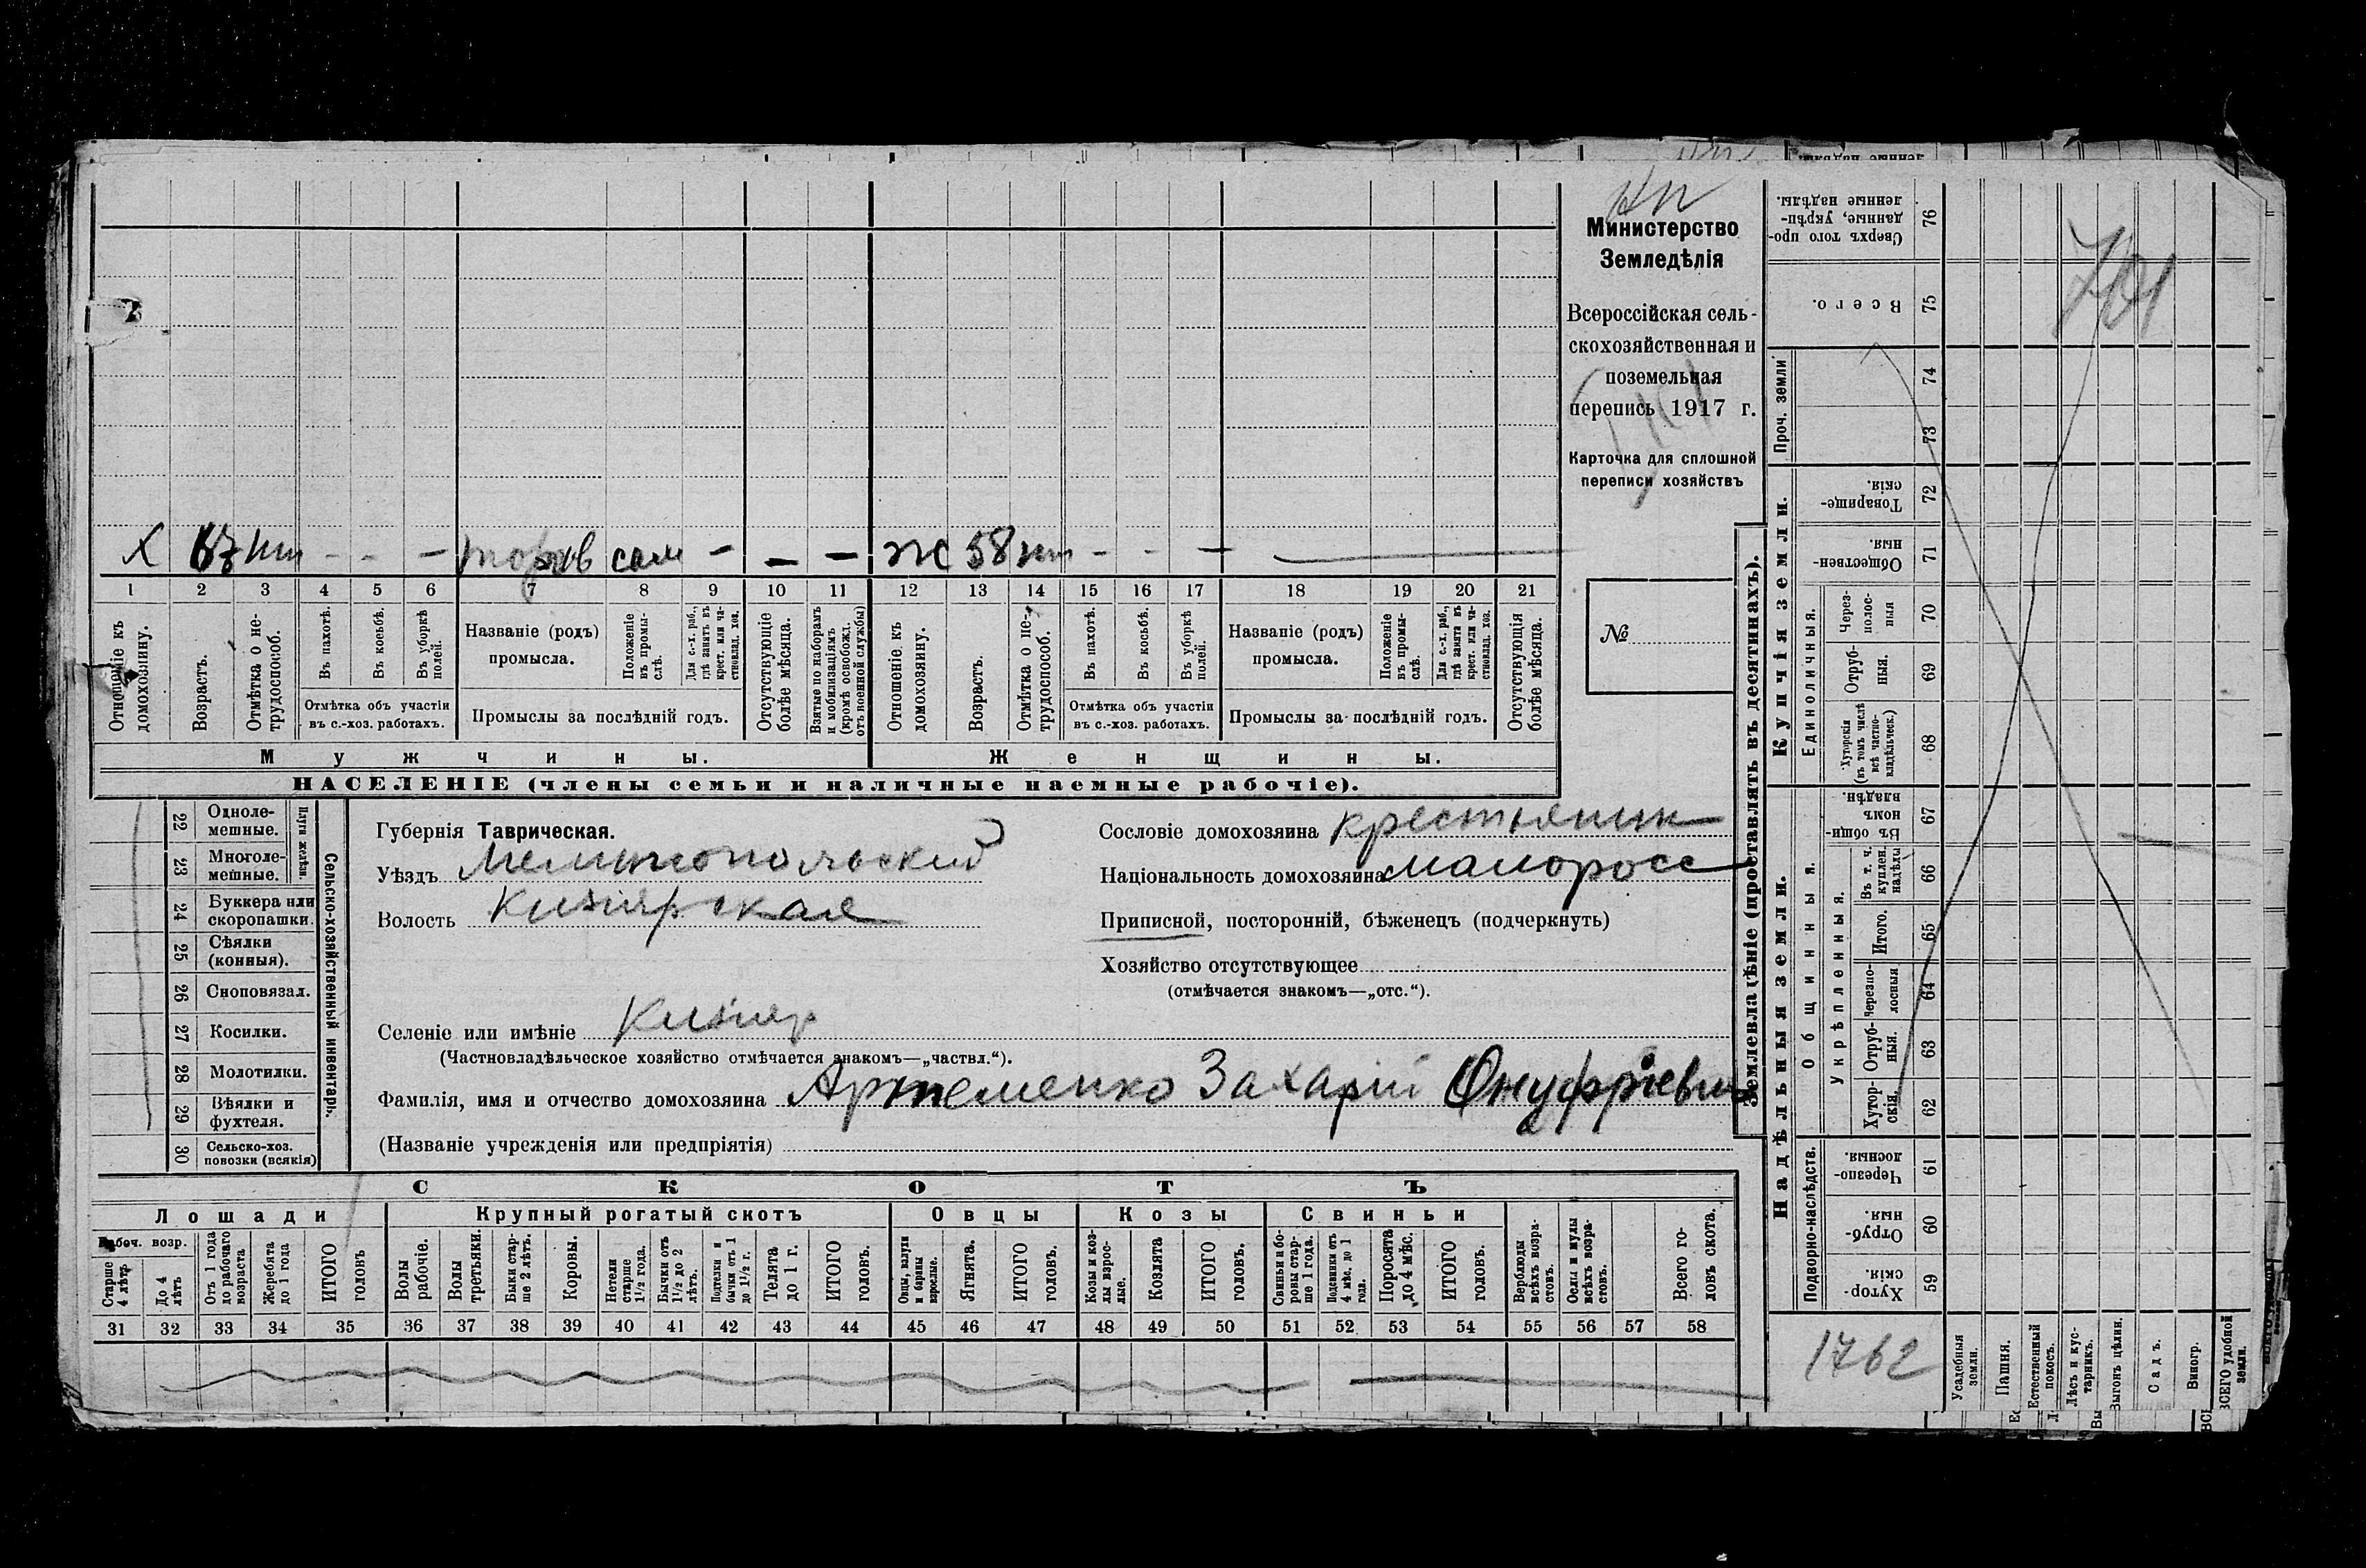 Министерство
Земледѣлія
Всероссійская сель-
скохозяйственная и
поземельная
перепись 1917 г.
Карточка для сплошной
переписи хозяйствъ
№
Х 67 нт - - - торгов сам - - - ж 58 нт - - -
1 2 3 4 5 6 7 8 9 10 11 12 13 14 15 16 17 18 19 20 21
Отношеніе къ домохозяину.
Возрастъ.
Отмѣтка о не-трудоспособ.
Въ пахотѣ.
Въ косьбѣ.
Въ уборкѣ полей.
Отмѣтка объ участіи
въ с.-хоз. работахъ.
Названіе (родъ)
промысла.
Положеніе въ промы-слѣ.
Для с.-х. раб., гдѣ занятъ въ крест. или ча-стновлад. хоз.
Промыслы за послѣдній годъ.
Отсутствующіе болѣе мѣсяца.
Взятые по наборамъ и мобилизаціямъ (кромѣ освобожд. отъ военной службы)
Отношеніе къ домохозяину.
Возрастъ.
Отмѣтка о не-трудоспособ.
Въ пахотѣ.
Въ косьбѣ.
Въ уборкѣ полей.
Отмѣтка объ участіи
въ с.-хоз. работахъ.
Названіе (родъ)
промысла.
Положеніе въ промы-слѣ.
Для с.-х. раб., гдѣ занята въ крест. или ча-стновлад. хоз.
Промыслы за послѣдній годъ.
Отсутствующія болѣе мѣсяца.
Мужчины.
Женщины.
НАСЕЛЕНІЕ (члены семьи и наличные наемные рабочіе).
Сельско-хозяйственный инвентарь.
Плуги желѣзн.
22 Одноле-мешные.
23 Многоле-мешные.
24 Буккера или скоропашки.
25 Сѣялки (конныя).
26 Сноповязал.
27 Косилки.
28 Молотилки.
29 Вѣялки и фухтеля.
30 Сельско-хоз. повозки (всякія)
Губернія Таврическая.
Уѣздъ Мелитопольский
Волость Кизиярская
Селеніе или имѣніе Кизияр
(Частновладѣльческое хозяйство отмѣчается знакомъ—„частвл.“).
Фамилія, имя и отчество домохозяина Артеменко Захарій Онуфріевич
(Названіе учрежденія или предпріятія)
Сословіе домохозяина крестьянин
Національность домохозяина малоросс
Приписной, посторонній, бѣженецъ (подчеркнуть)
Хозяйство отсутствующее
(отмѣчается знакомъ—„отс.“).
СКОТЪ
Лошади
Крупный рогатый скотъ
Овцы
Козы
Свиньи
Рабоч. возр.
Старше 4 лѣтъ
До 4 лѣтъ
Отъ 1 года до рабочаго возраста
Жеребята до 1 года
ИТОГО головъ
Волы рабочіе.
Волы третьяки.
Быки стар-ше 2 лѣтъ.
Коровы.
Нетели старше 1½ года.
Бычки отъ 1½ до 2 лѣтъ.
Подтелки и бычки отъ 1 до 1½ г.
Телята до 1 г.
ИТОГО головъ.
Овцы, валухи и бараны взрослые.
Ягнята.
ИТОГО головъ.
Козы и коз-лы взрос-лые.
Козлята
ИТОГО головъ.
Свиньи и бо-ровы стар-ше 1 года.
Подсвинки отъ 4 мѣс. до 1 года.
Поросята до 4 мѣс.
ИТОГО головъ.
Верблюды всѣхъ возра-стовъ.
Ослы и мулы всѣхъ возра-стовъ.
Всего го-ловъ скота.
31 32 33 34 35 36 37 38 39 40 41 42 43 44 45 46 47 48 49 50 51 52 53 54 55 56 57 58
Землевладѣніе (проставлять въ десятинахъ).
Купчія земли.
Надѣльныя земли.
Проч. земли
Единоличныя.
Общинныя.
Укрѣпленныя.
Подворно-наслѣдств.
Сверхъ того про-данные, укрѣп-ленные надѣлы. 76
Всего. 75
74
73
Товарище-скія. 72
Обществен-ныя. 71
Через-полос-ныя 70
Отруб-ныя. 69
Хуторскія (въ томъ числѣ всѣ частно-владѣльческ.) 68
Въ общи-номъ владѣн. 67
Въ т. ч. куплен. надѣлы 66
Итого. 65
Черезпо-лосныя 64
Отруб-ныя. 63
Хутор-скія. 62
Черезпо-лосныя. 61
Отруб-ныя. 60
Хутор-скія. 59
1762
Усадебныя земли.
Пашня.
Естественный покосъ.
Лѣсъ и кус-тарникъ.
Выгонъ цѣлин.
Садъ.
Виногр.
ВСЕГО удобной земли.